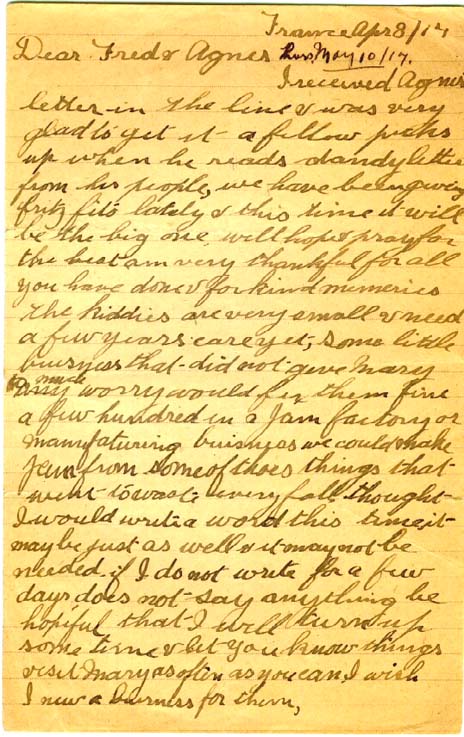 France Apr 8/17
Dear Fred & Agnes Thurs May 10/17.
I received Agnes
letter in the line & was very
glad to get it a fellow picks
up when he reads dandy letter
from his people, we have been giving
fritz fits lately & this time it will
be the big one, will hope & pray for
the best am very thankful for all
you have done & for kind memories
The kiddies are very small & need
a few years care yet, some little
business that did not give Mary
much
any worry would fix them fine
a few hundred in a Jam factory or
manufacturing buisness we could make
Jam from some of thoes things that
went to waste every fall thought
I would write a word this time it
may be just as well & it may not be
needed if I do not write for a few
days does not say anything be
hopiful that I will turn up
some time & let you know things
visit Mary as often as you can, I wish
I new a buisness for them,